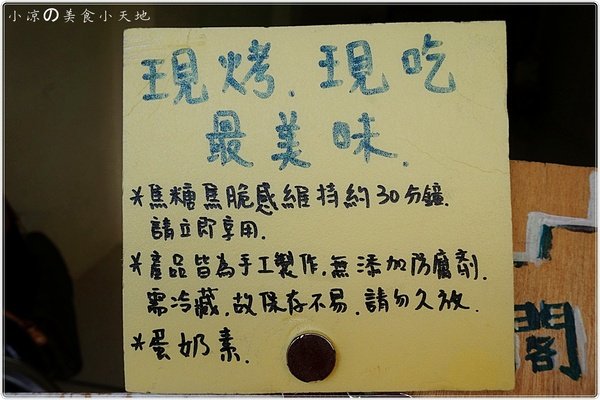 小涼の美食小天地
現烤.現吃
最美味.
*焦糖焦脆感維持約30分鐘.
請立即享用.
*產品皆為手工製作,無添加防腐劑.
需冷藏,故保存不易.請勿久放.
*蛋奶素.
閣